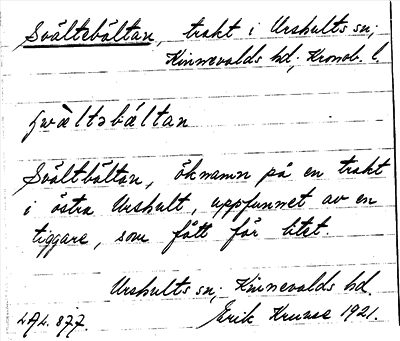 Svältebältan, trakt i Urshults sn;
Kinnevalds hd; Kronob. l.
svæ̀ltəbæ̀ltan
Svältbältan, öknamn på en trakt
i östra Urshult, uppfunnet av en
tiggare, som fått för litet.
Urshults sn; Kinnevalds hd.
LAL. 877. Erik Kruuse 1921.